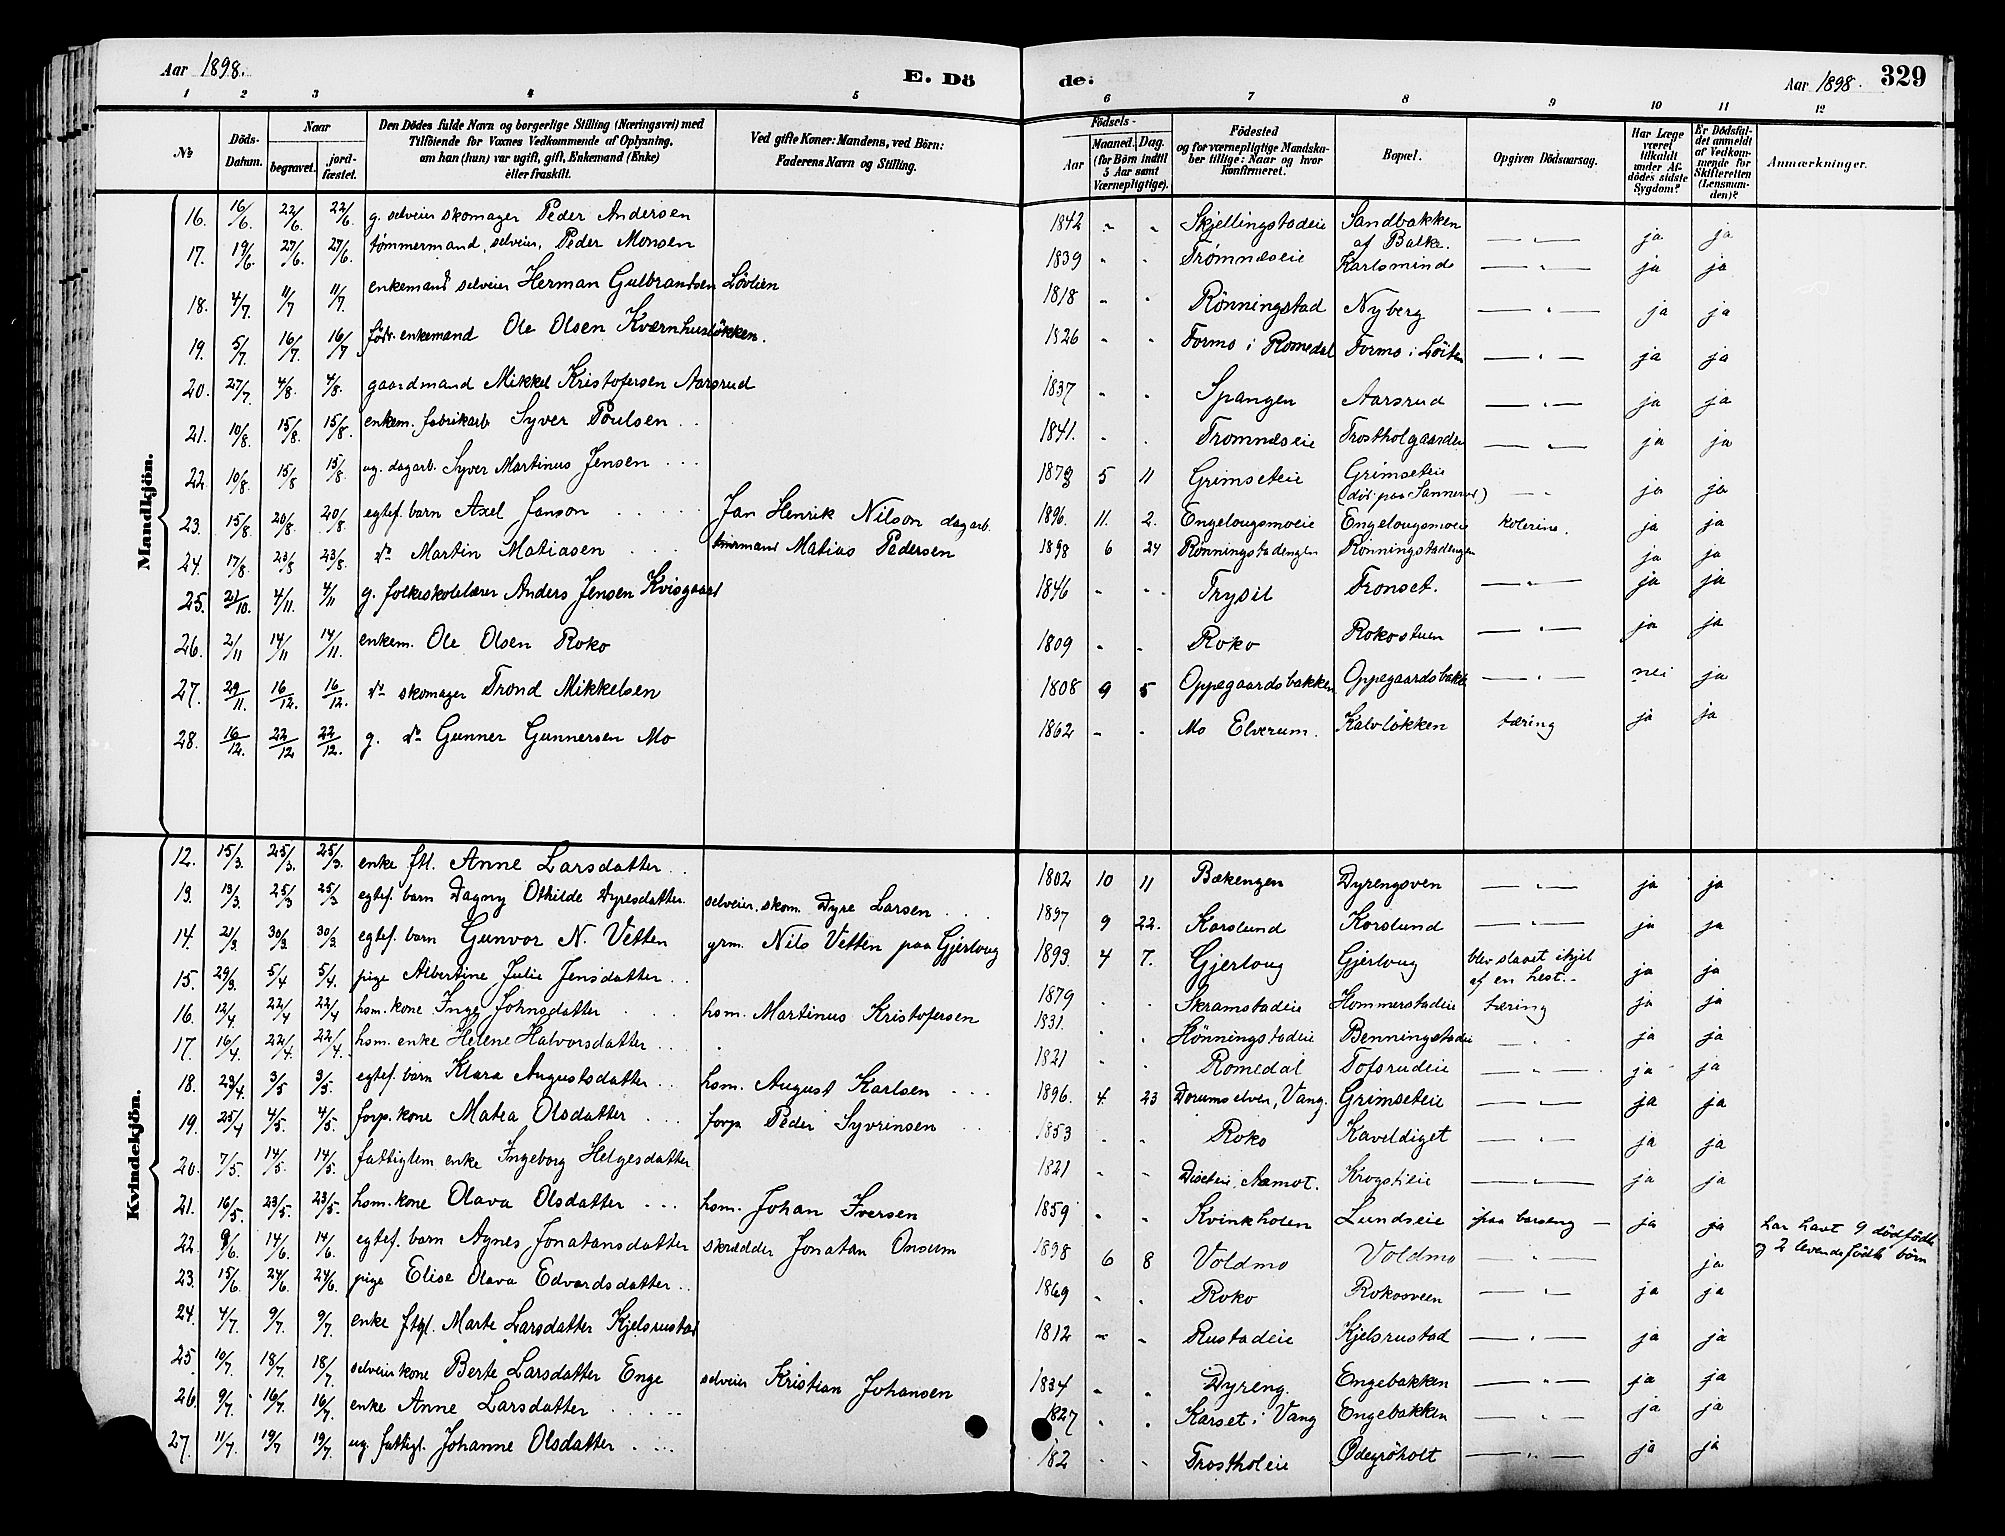 Aar 1898.
E. Dö de:
Aar 1898.
329
1 2 3 4 5 6 7 8 9 10 11 12
No
Döds-Datum.
Naar
begravet.
jord-fæstet.
Den Dödes fulde Navn og borgerlige Stilling (Næringsvei) med
Tilföiende for Voxnes Vedkommende af Oplysning,
om han (hun) var ugift, gift, Enkemand (Enke)
eller fraskilt.
Ved gifte Koner: Mandens, ved Börn:
Faderens Navn og Stilling.
Födsels-
Aar
Maaned. Dag.
(for Börn indtil
5 Aar samt
Værnepligtige).
Födested
og for værnepligtige Mandska-
ber tillige: Naar og hvor
konfirmeret.
Bopæl.
Opgiven Dödsaarsag.
Har Læge
været
tilkaldt
under Af-
dödes sidste
Sygdom?
Er Dödsfal-
det anmeldt
af Vedkom-
mende for
Skifteretten
(Lensman-
den)?
Anmærkninger.
Mandkjön.
16. 16/6. 22/6 22/6. g. selveier skomager Peder Andersen 1842 " " Skjellingstadeie Sandbakken af Balke. — " — ja ja
17. 19/6. 27/6. 27/6. tømmermand, selveier, Peder Monsen 1839 " " Trømnæseie Karlsminde — " — ja ja
18. 4/7. 11/7 11/7. enkemand selveier Herman Gulbrandsen Løvlien 1818 " " Rønningstad Nyberg — " — ja ja
19. 5/7. 16/7. 16/7 föder. enkemand Ole Olsen Kværnhusløkken. 1826 " " Formo i Romedal Formo i Löiten — " — ja ja
20. 27/7. 4/8. 4/8. gaardmand Mikkel Kristofersen Aarsrud 1837 " " Spangen Aarsrud — " — ja ja
21. 10/8. 15/8. 15/8. enkem. fabrikarb Syver Poulsen . . 1841. " " Tromnæseie Trostholgaarden — " — ja ja
22 10/8. 15/8 15/8. ug. dagarb. Syver Martinus Jensen . . . 1878 5 11 Grimseteie Grimseteie (död paa Sannerud) — " ja ja
23. 15/8. 20/8. 20/8. egtef. barn Axel Janson . . . . . Jan Henrik Nilson dagarb. 1896. 11. 2. Engelougsmoeie Engelougsmoeie kolerine. ja ja
24. 17/8. 23/8 23/8. do Martin Matiasen . . . . Matias Pedersen 1898 6 24 Rønningstadengen Rønningstadengen ja ja
25. 21/10. 4/11. 4/11 g. folkeskolelærer Anders Jensen Kvisgaard 1846 " " Trysil Tronset. — " — ja ja
26. 2/11 14/11 14/11. enkem. Ole Olsen Roko 1809 " " Roko Rokostuen — " — ja ja
27. 29/11. 16/12. 16/12. do skomager Trond Mikkelsen 1808 9 5 Oppegaardsbakken Oppegaardsbakken — " — nei ja
28. 16/12. 22/12 22/12. g. do Gunner Gunnersen Mo 1862 " " Mo Elverum. Kalvløkken tæring ja ja
Kvindekjön.
12. 15/3. 25/3. 25/3. enke ftl. Anne Larsdatter . . 1802 10 11 Bækengen Dyrengsven — " — ja ja
13. 13/3. 25/3 25/3. egtef. barn Dagny Othilde Dyresdatter. selveier, skom. Dyre Larsen . . . . 1897 9 22. Korslund Korslund — " — ja ja
14. 21/3 30/3. 30/3. egtef. barn Gunvor N. Vetten grm. Nils Vetten paa Gjerloug 1893. 4 7. Gjerloug Gjerloug blev slaaet ihjel af en hest. ja ja
15. 29/3. 5/4 5/4. pige Albertine Julie Jensdatter . . 1879 " " Skramstadeie Hommerstadeie tæring ja ja
16. 12/4. 22/4 22/4 hsm. kone Inge Johnsdatter . . . . hsm. Martinus Kristofersen 1831. " " Hønningstadeie Benningstadeie — " ja ja
17. 16/4. 22/4. 22/4. hsm. enke Helene Halvorsdatter . . . 1821 " " Romedal Tofsrudeie — " — ja ja
18. 23/4. 3/5 3/5. egtef. barn Klara Augustsdatter . . hsm. August Karlsen . . . 1896. 4. 23 Dorumselven, Vang. Grimseteie — " — ja ja
19. 25/4 4/5. 4/5. forp. kone Matea Olsdatter . . . forp. Peder Syvrinsen . . 1853 " " Roko Kaveldiget — " — ja ja
20. 7/5. 14/5 14/5. fattiglem enke Ingeborg Helgesdatter 1821 " " Diseteie, Aamot. Krogstieie — " — ja ja
21. 16/5. 23/5. 23/5. hsm. kone Olava Olsdatter . . . hsm. Johan Iversen 1859 " " Kvinkholen Lundseie paa barseng — ja ja har havt 9 dödfödte og 2 levende födte börn
22. 9/6. 14/6. 14/6. egtef. barn Agnes Jonatansdatter skrædder Jonatan Onsum 1898 6 8 Voldmo Voldmo — " — ja
23. 15/6 24/6. 24/6. pige Elise Olava Edvardsdatter . . 1869 " " Roko Rokosveen ja ja
24. 4/7. 9/7. 9/7. enke ftgl. Marte Larsdatter Kjelsrustad 1812 " " Rustadeie Kjelsrustad — " — ja ja
25. 10/7. 18/7. 18/7. selveier kone Berte Larsdatter Enge selveier Kristian Johansen 1834 " " Dyreng. Engebakken — " — ja ja
26. 9/7. 16/7. 16/7. enke Anne Larsdatter . . . . . 1827 " " Karset i Vang Engebakken — " — ja ja
27. 11/7. 19/7 19/7. ug. fattigl. Johanne Olsdatter . . . 182 " " Trostholeie Ödegröholt — " — ja ja